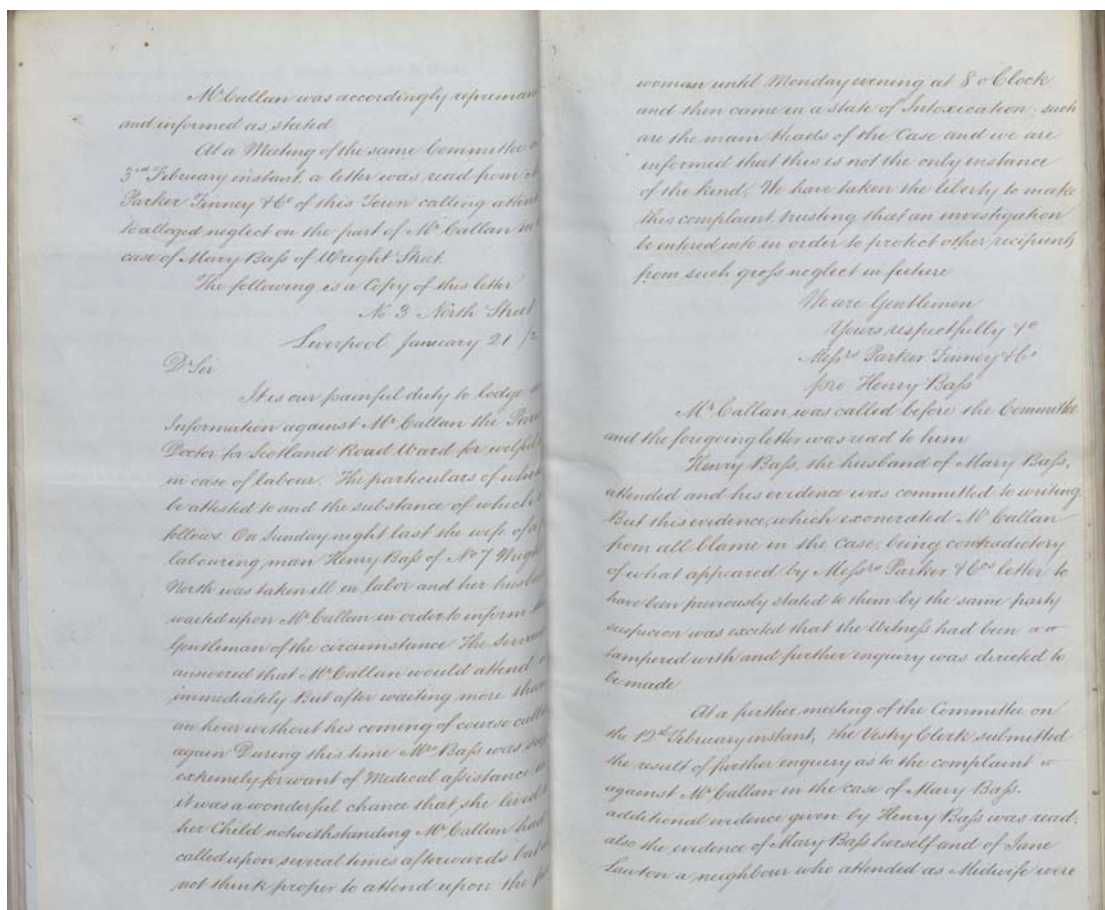 Mr Callan was accordingly
and informed as stated
At a Meeting of the same Committee
3rd February instant, a letter was read from
Parker Finney & Co of this Town calling
to alleged neglect on the part of Mr Callan
case of Mary Baſs of Wright Street
The following is a Copy of this letter
No 3 North Street
Liverpool January 21
Dr Sir
It is our painful duty to lodge
Information against Mr Callan the
Doctor for Scotland Road Ward for
in case of labour. The particulars of
be attested to and the substance of which
follows. On Sunday night last the wife of a
labouring man Henry Baſs of No 7
North was taken ill in labor and her
waited upon Mr Callan in order to inform
Gentleman of the circumstance The
answered that Mr Callan would attend
immediately But after waiting more than
an hour without his coming of course
again During this time Mrs Baſs was
extremely for want of Medical aſsistance
it was a wonderful chance that she
her Child notwithstanding Mr Callan had
called upon several times afterwards but
not think proper to attend upon the
woman until Monday evening at 8 o'Clock
and then came in a state of Intoxication, such
are the main heads of the Case and we are
informed that this is not the only instance
of the kind, We have taken the liberty to make
this complaint, trusting that an investigation
be entered into in order to protect other recipients
from such groſs neglect in future
We are Gentlemen
Yours respectfully &c
Meſsrs Parker Finney & Co
pro Henry Baſs
Mr Callan was called before the Committee
and the foregoing letter was read to him
Henry Baſs, the husband of Mary Baſs,
attended and his evidence was committed to writing.
But this evidence, which exonerated Mr Callan
from all blame in the case, being contradictory
of what appeared by Meſsrs Parker & Cos letter to
have been previously stated to them by the same party
suspicion was excited that the Witneſs had been
tampered with and further enquiry was directed to
be made
At a further meeting of the Committee on
the 12th February instant, the Vestry Clerk submitted
the result of further enquiry as to the complaint
against Mr Callan in the case of Mary Baſs.
additional evidence given by Henry Baſs was read;
also the evidence of Mary Baſs herself and of Jane
Lawton a neighbour who attended as Midwife were